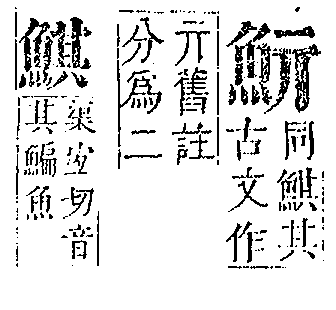 同鯕其
古文作
亓舊註
分爲二
鯕
渠宜切音
其鯿魚